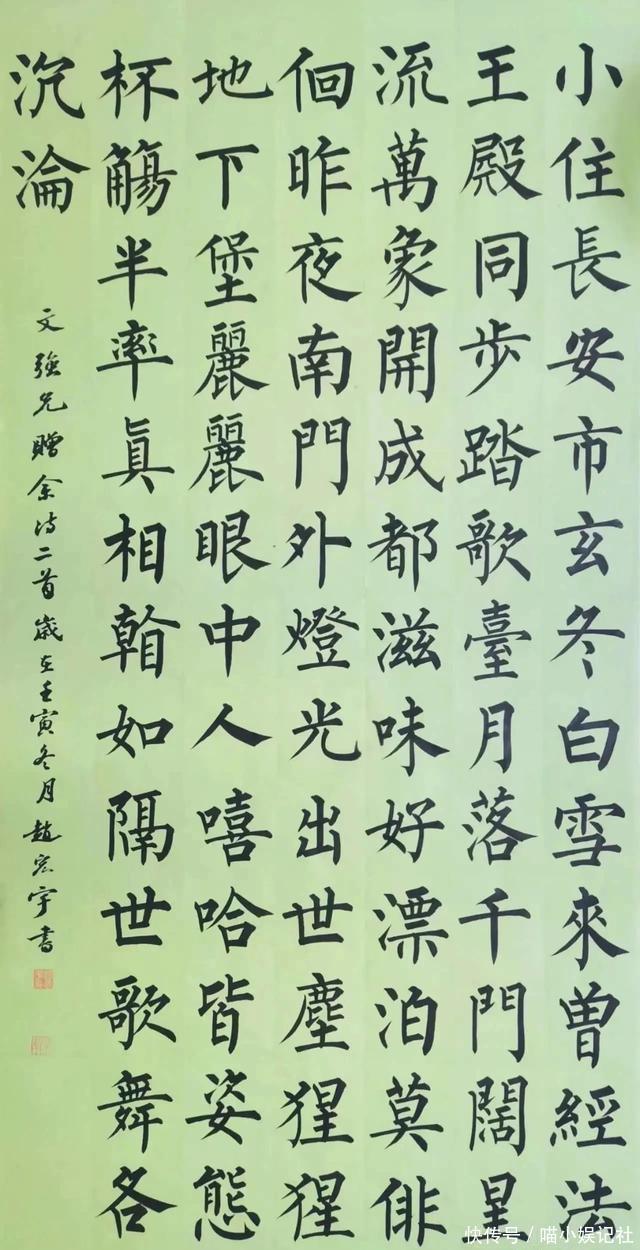 小住長安市玄冬白雪來曾經法
王殿同步踏歌臺月落千門闊星
流萬象開成都滋味好漂泊莫俳
佪昨夜南門外燈光出世塵猩猩
地下堡麗麗眼中人嘻哈皆姿態
杯觴半率眞相如隔世歌舞各
沉淪
文強兄贈余詩二首歲在壬寅冬月趙宏宇書
快传号 / 喵小娱记社